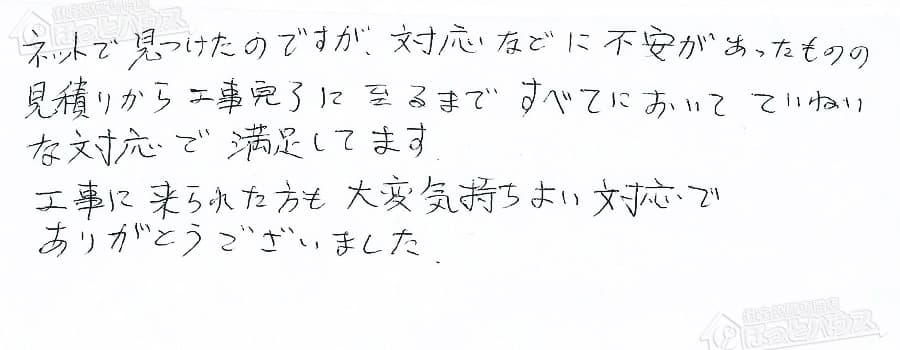 ネットで見つけたのですが、対応などに不安があったものの
見積りから工事完了に至るまですべてにおいてていねい
な対応で満足してます.
工事に来られた方も大変気持ちよい対応で
ありがとうございました.
ほっとハウス
ほっとハウス